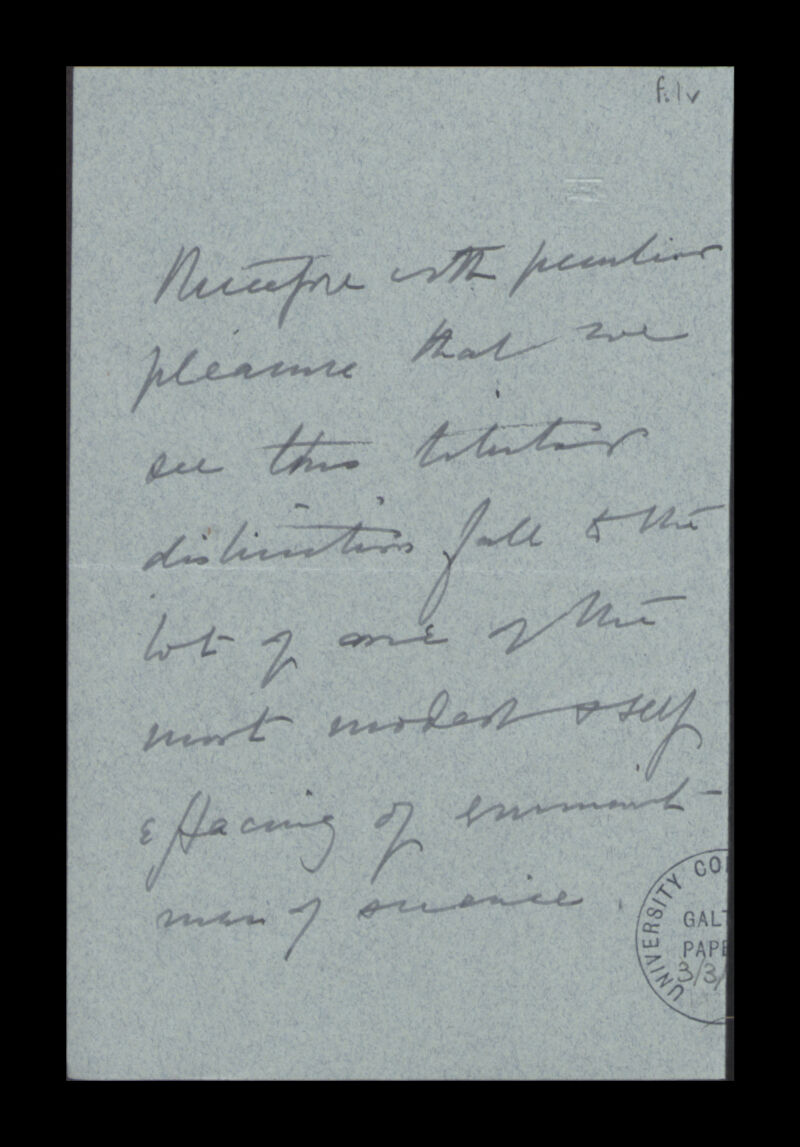 f.1v
Therefore with peculiar
pleasure that we
see this
distinction fall to the
lot of one of the
most modest & self
effacing of eminent
men of science.
UNIVERSITY CO
GALT
PAPE
3/3/